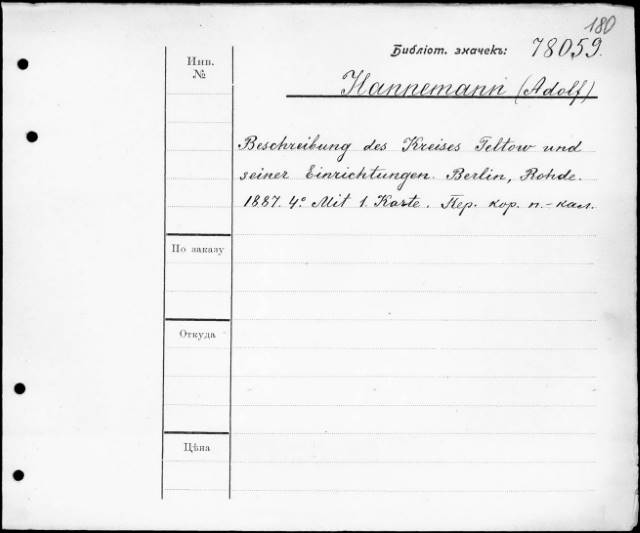 180
Библіот. значекъ: 78059.
Инв.
№
Hannemann (Adolf)
Beschreibung des Kreises Teltow und
seiner Einrichtungen. Berlin, Rohde.
1887. 4º Mit 1. Karte. Пер. кор. п.-кал.
По заказу
Откуда
Цѣна